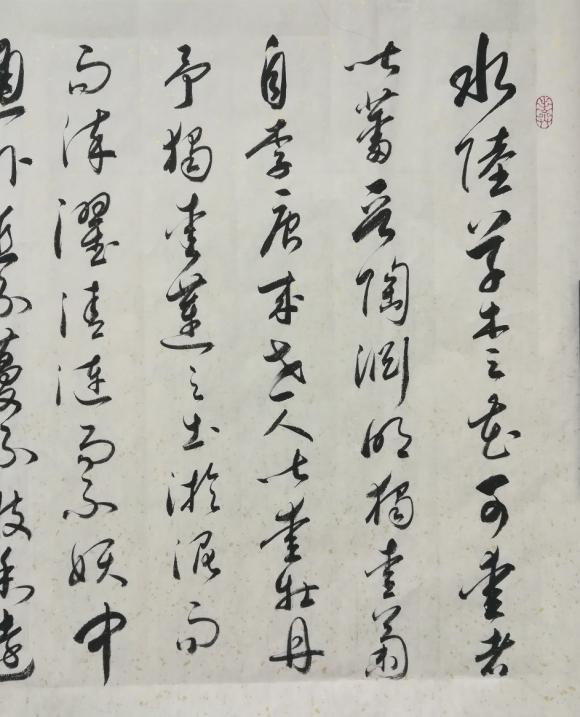 水陸草木之花可愛者
甚蕃晉陶淵明獨愛菊
自李唐來世人甚愛牡丹
予獨愛蓮之出淤泥而
染濯清漣而不妖中
通外直不蔓不枝香遠